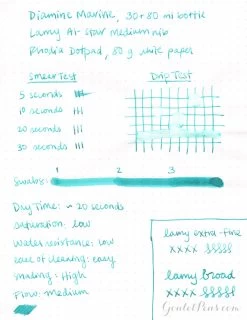 Diamine Marine, 30+80 ml bottle
Lamy Al-Star medium nib
Rhodia Dotpad, 80 g white paper
Smear Test
Drip Test
5 seconds
10 seconds
20 seconds
30 seconds
1 2 3
Swabs:
Dry Time: ~20 seconds
Saturation: low
Water resistance: low
Ease of cleaning: easy
Shading: High
Flow: Medium
lamy extra-fine
xxxx
lamy broad
xxxx
GouletPens.com